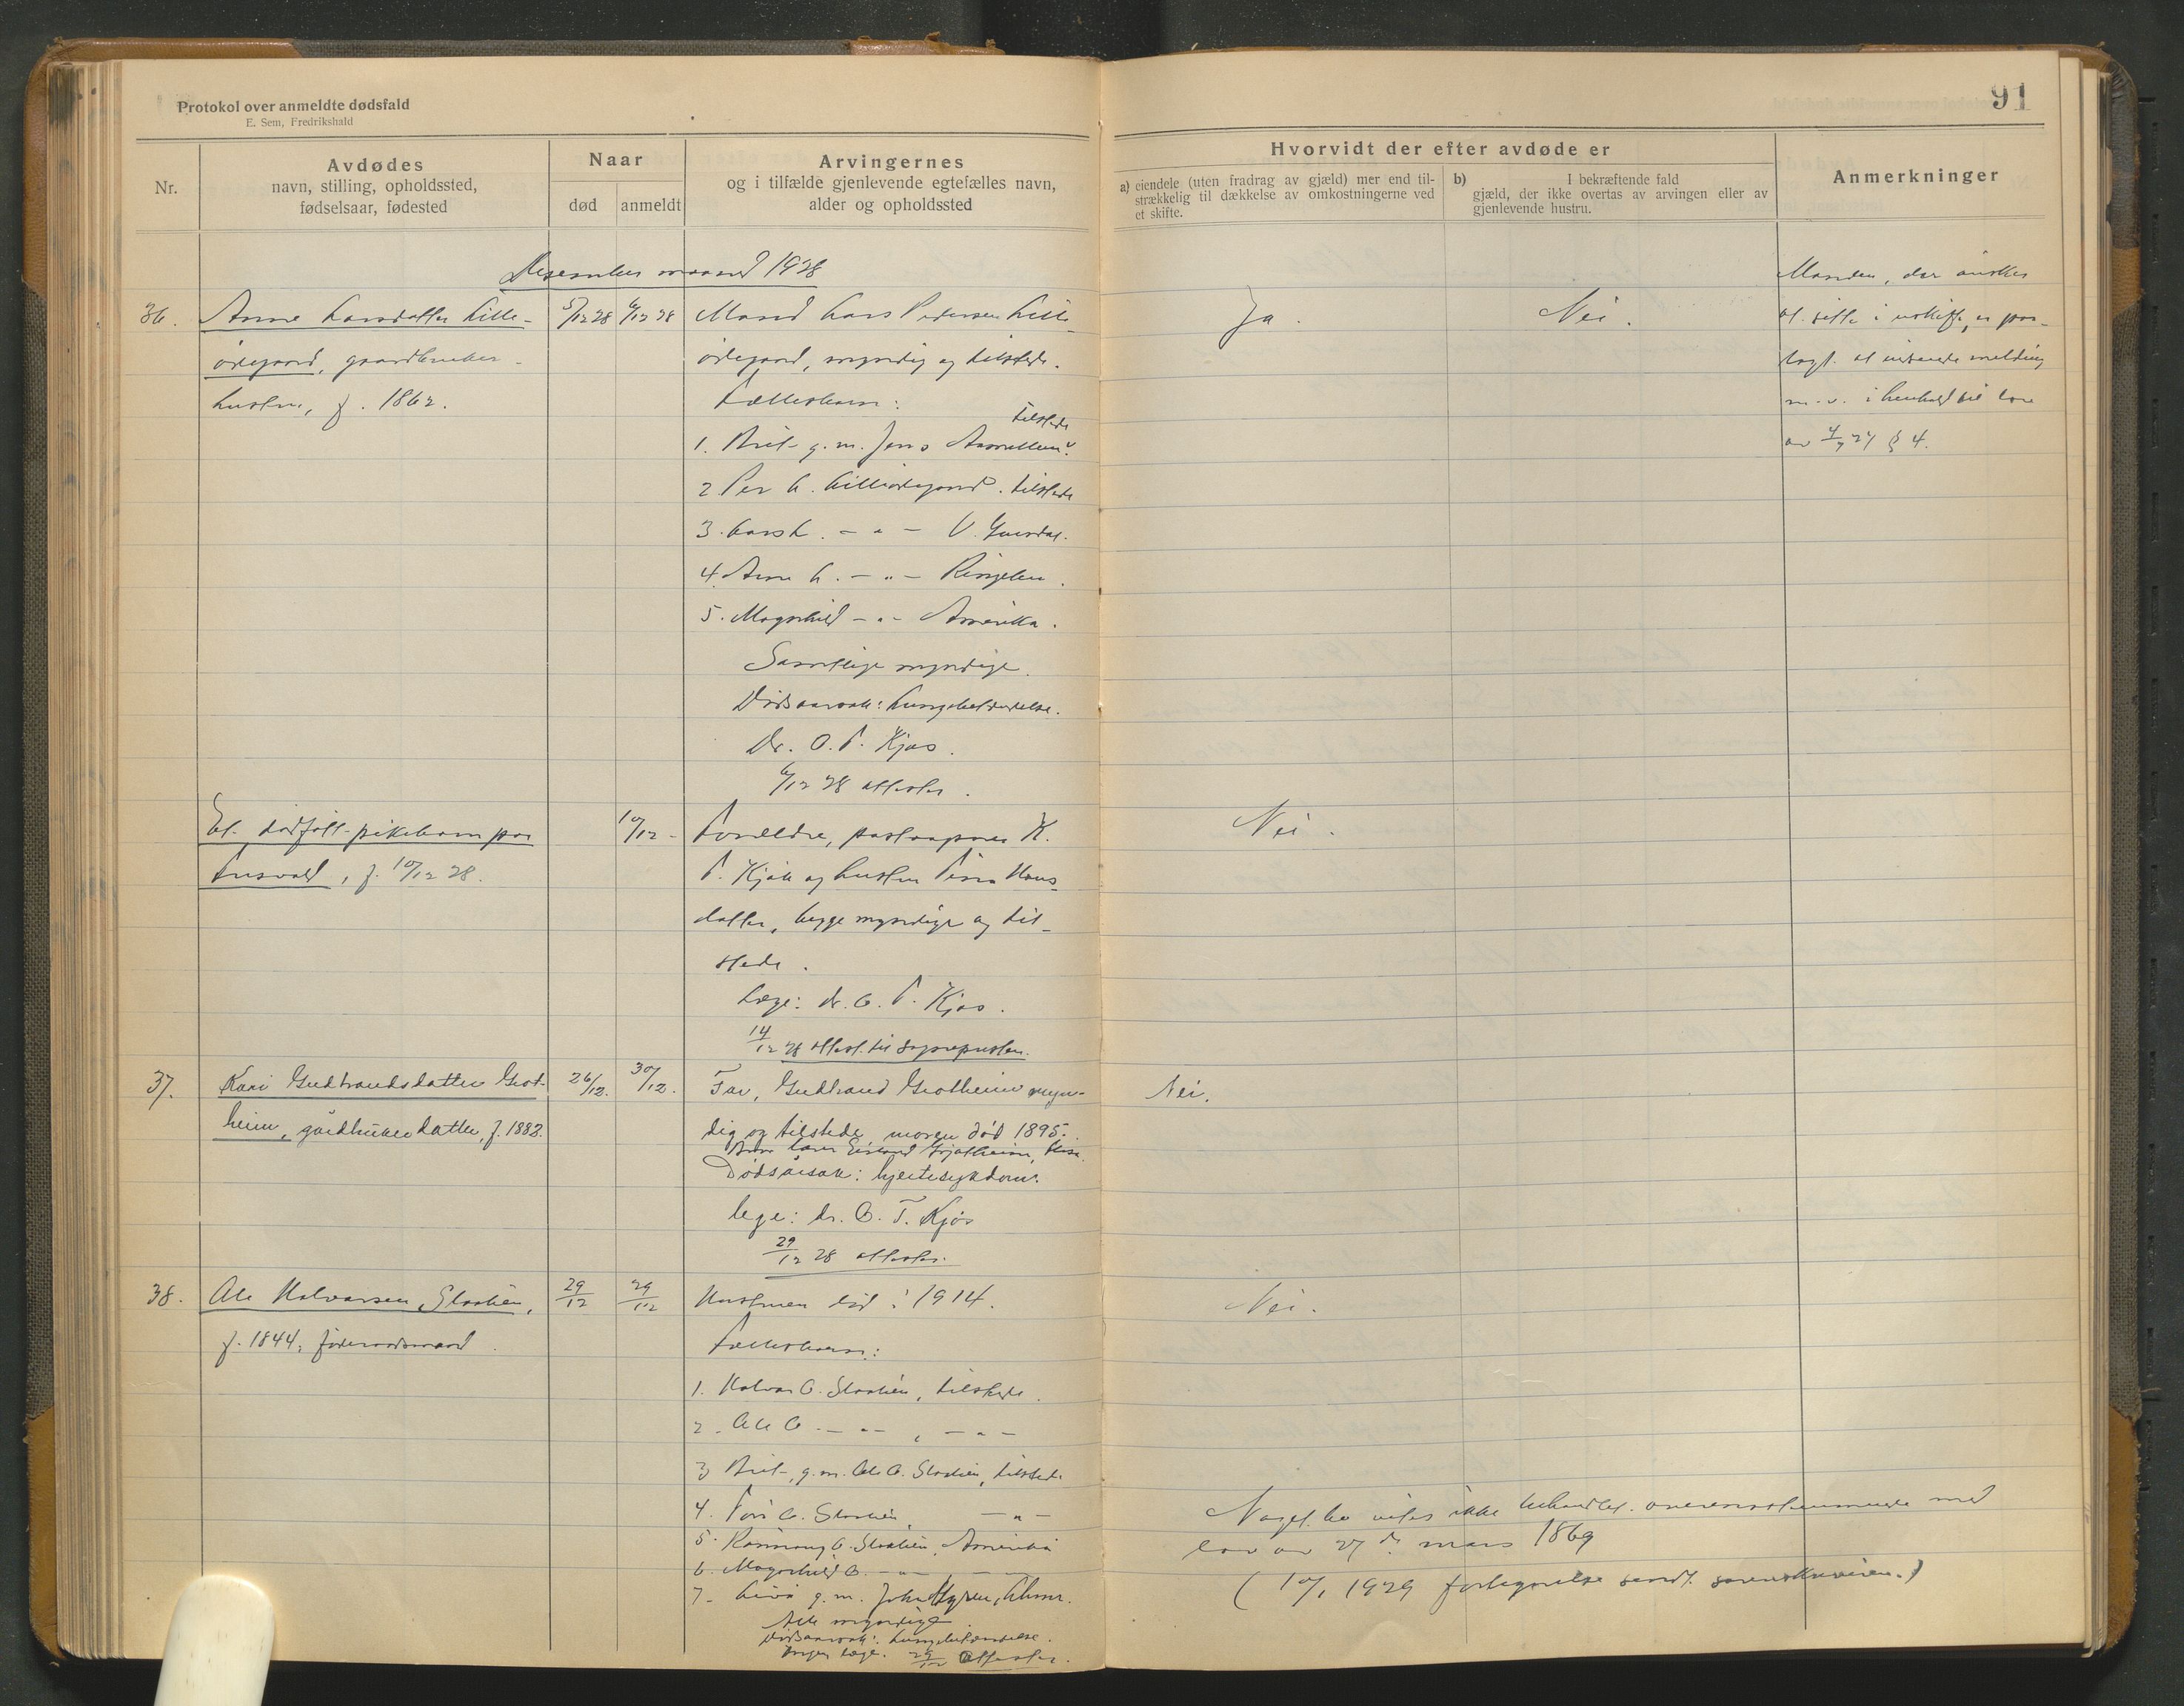 Protokol over anmeldte dødsfald
E. Sem, Fredrikshald
91
Nr.
Avdødes
navn, stilling, opholdssted,
fødselsaar, fødested
Naar
død
anmeldt
Arvingernes
og i tilfælde gjenlevende egtefælles navn,
alder og opholdssted
Hvorvidt der efter avdøde er
a) eiendele (uten fradrag av gjæld) mer end til-
strækkelig til dækkelse av omkostningerne ved
et skifte.
b) I bekræftende fald
gjæld, der ikke overtas av arvingen eller av
gjenlevende hustru.
Anmerkninger
Desember maaned 1928
36.
Anne Larsdatter Lille-
ødegaard, gaardbruker-
hustru, f. 1862.
5/12 28
6/12 28
Mand Lars Pedersen Lille-
ødegaard, myndig og tilstede.
Fællesbarn:
1. Brit g.m. Jens tilstede
2. Per L. Lilleødegaard. tilstede
3. Lars L. - " - V. Gausdal.
4. Anne L. - " - Ringebu.
5. Magnhild - " - Amerika.
Samtlige myndige.
Dødsaarsak: Lungebetændelse.
Dr. O. T. Kjøs.
6/12 28 attester.
Ja.
Nei.
Manden, der ønsker
at sitte i uskifte, er paa-
lagt at indsende melding
m.v. i henhold til lov
av 4/7 27 § 4.
Et dødfødt pikebarn paa
, f. 10/12 28.
10/12 -
Foreldre, K.
T. Kjøk og hustru Tina Hans-
datter, begge myndige og til-
stede.
Læge: dr. O. T. Kjøs.
14/12 28 attest. til sognepresten.
Nei.
37.
Kari Gudbrandsdatter Grot-
heim, gårdbruker datter, f. 1883.
26/12.
30/12.
Far, Gudbrand Grotheim myn-
dig og tilstede, moren død 1895.
Dødsårsak: hjertesygdom.
lege: dr. O. T. Kjøs
29/12 28 attester.
Nei.
38.
Ole Halvorsen Slaalien,
f. 1844, føderaadsmand.
29/12
29/12
Hustruen død i 1914.
Fællesbarn:
1. Halvor O. Slaalien, tilstede.
2. Ole O. - " - , - " -
3 Brit, g.m. Ole O. Slaalien, tilstede
4. Tor O. Slaalien, - " -
5. Rønnaug O. Slaalien, Amerika
6. Magnhild O. - " -
7. g.m. John
Alle myndige
Dødsaarsak: Lungebetændelse.
Ingen læge. 29/12 Attester.
Nei.
Noget bo vites ikke behandlet overensstemmende med
lov av 27de mars 1869
( 10/1 1929 fortegnelse sendt sorenskriveren.)